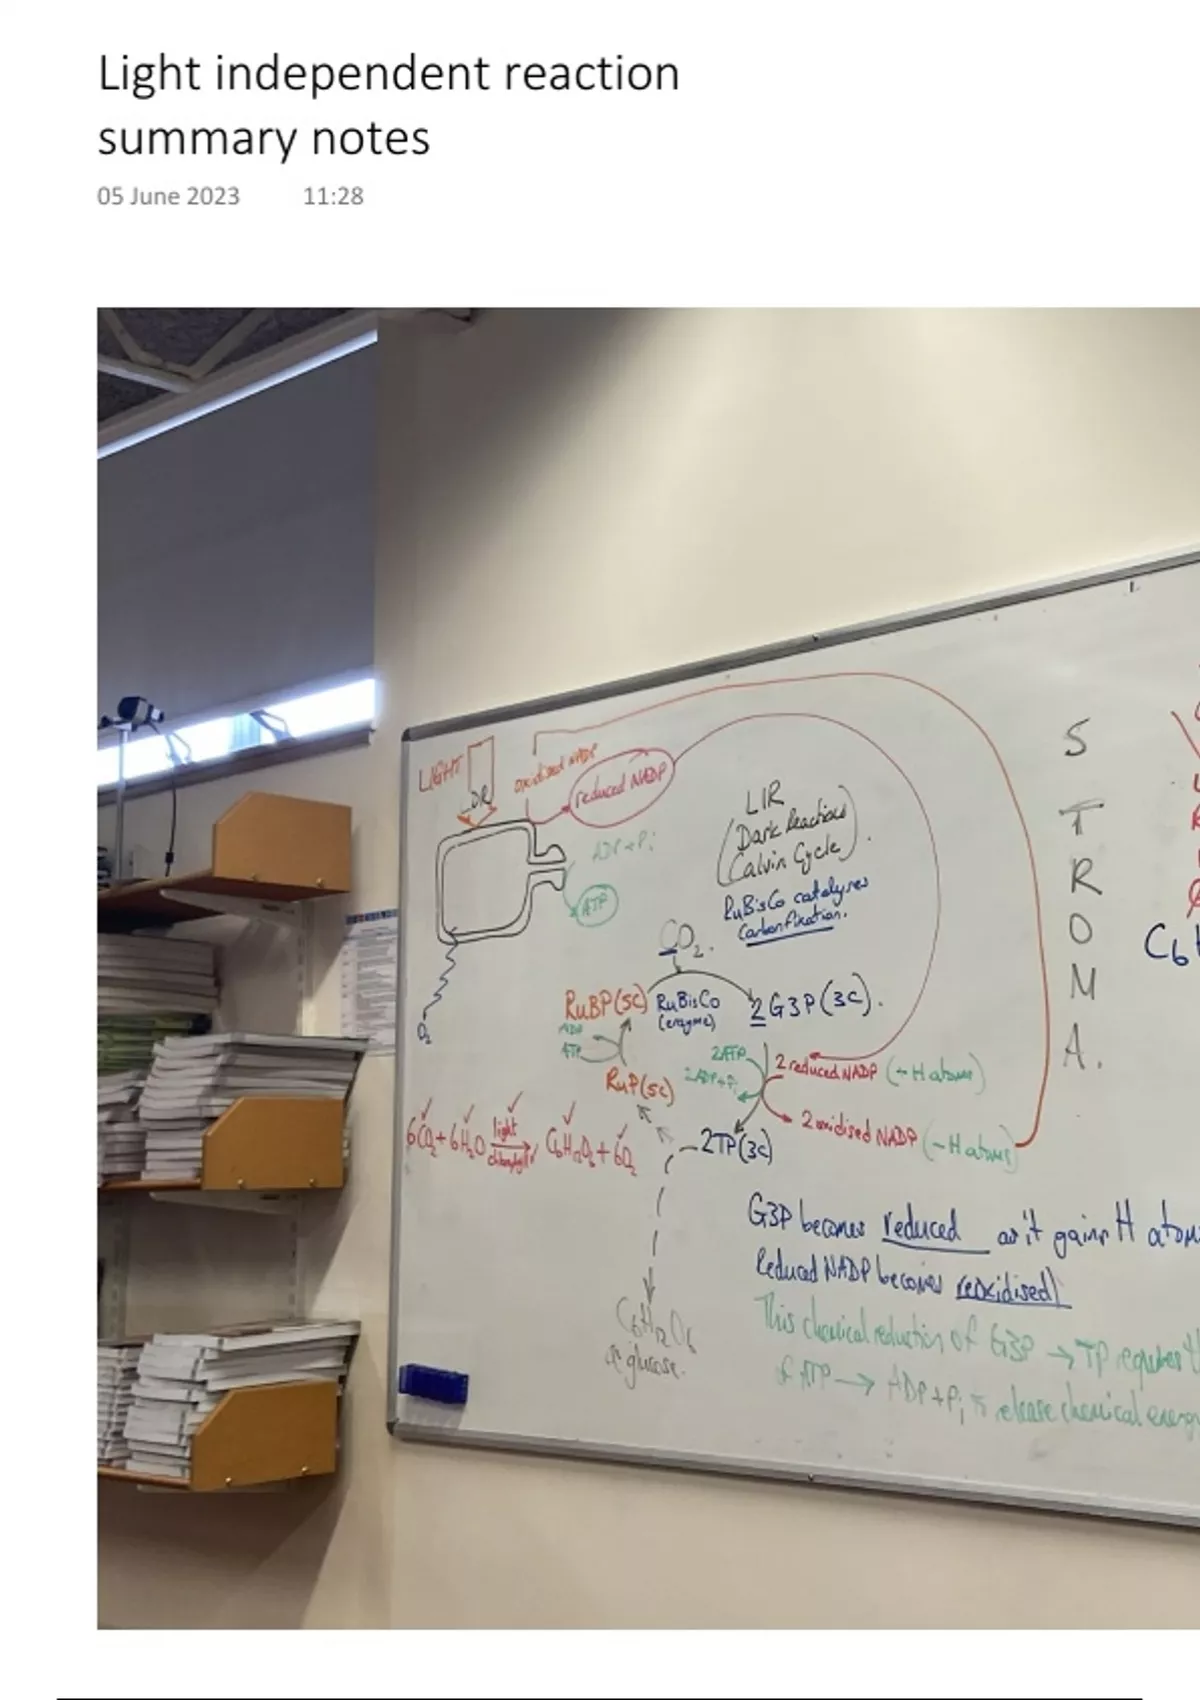 Light independent reaction
summary notes
05 June 2023 11:28
LIGHT
oxidised NADP
reduced NADP
ADP + Pi
ATP
O2
LIR
(Dark Reactions
Calvin Cycle).
RuBisCo catalyses
Carbon fixation.
CO2.
RuBP(5C) RuBisCo
(enzyme)
2G3P(3C).
ADP
ATP
RuP(5C)
2ATP
2ADP+Pi
2 reduced NADP (-H atoms)
2 oxidised NADP (-H atoms)
2TP(3C)
6CO2 + 6H2O light chlorophyll C6H12O6 + 6O2
C6H12O6
glucose.
G3P becomes reduced as it gains H atom
Reduced NADP becomes reoxidised
This chemical reduction of G3P → TP requires
of ATP → ADP+Pi release chemical energy
S
T
R
O
M
A.
C6